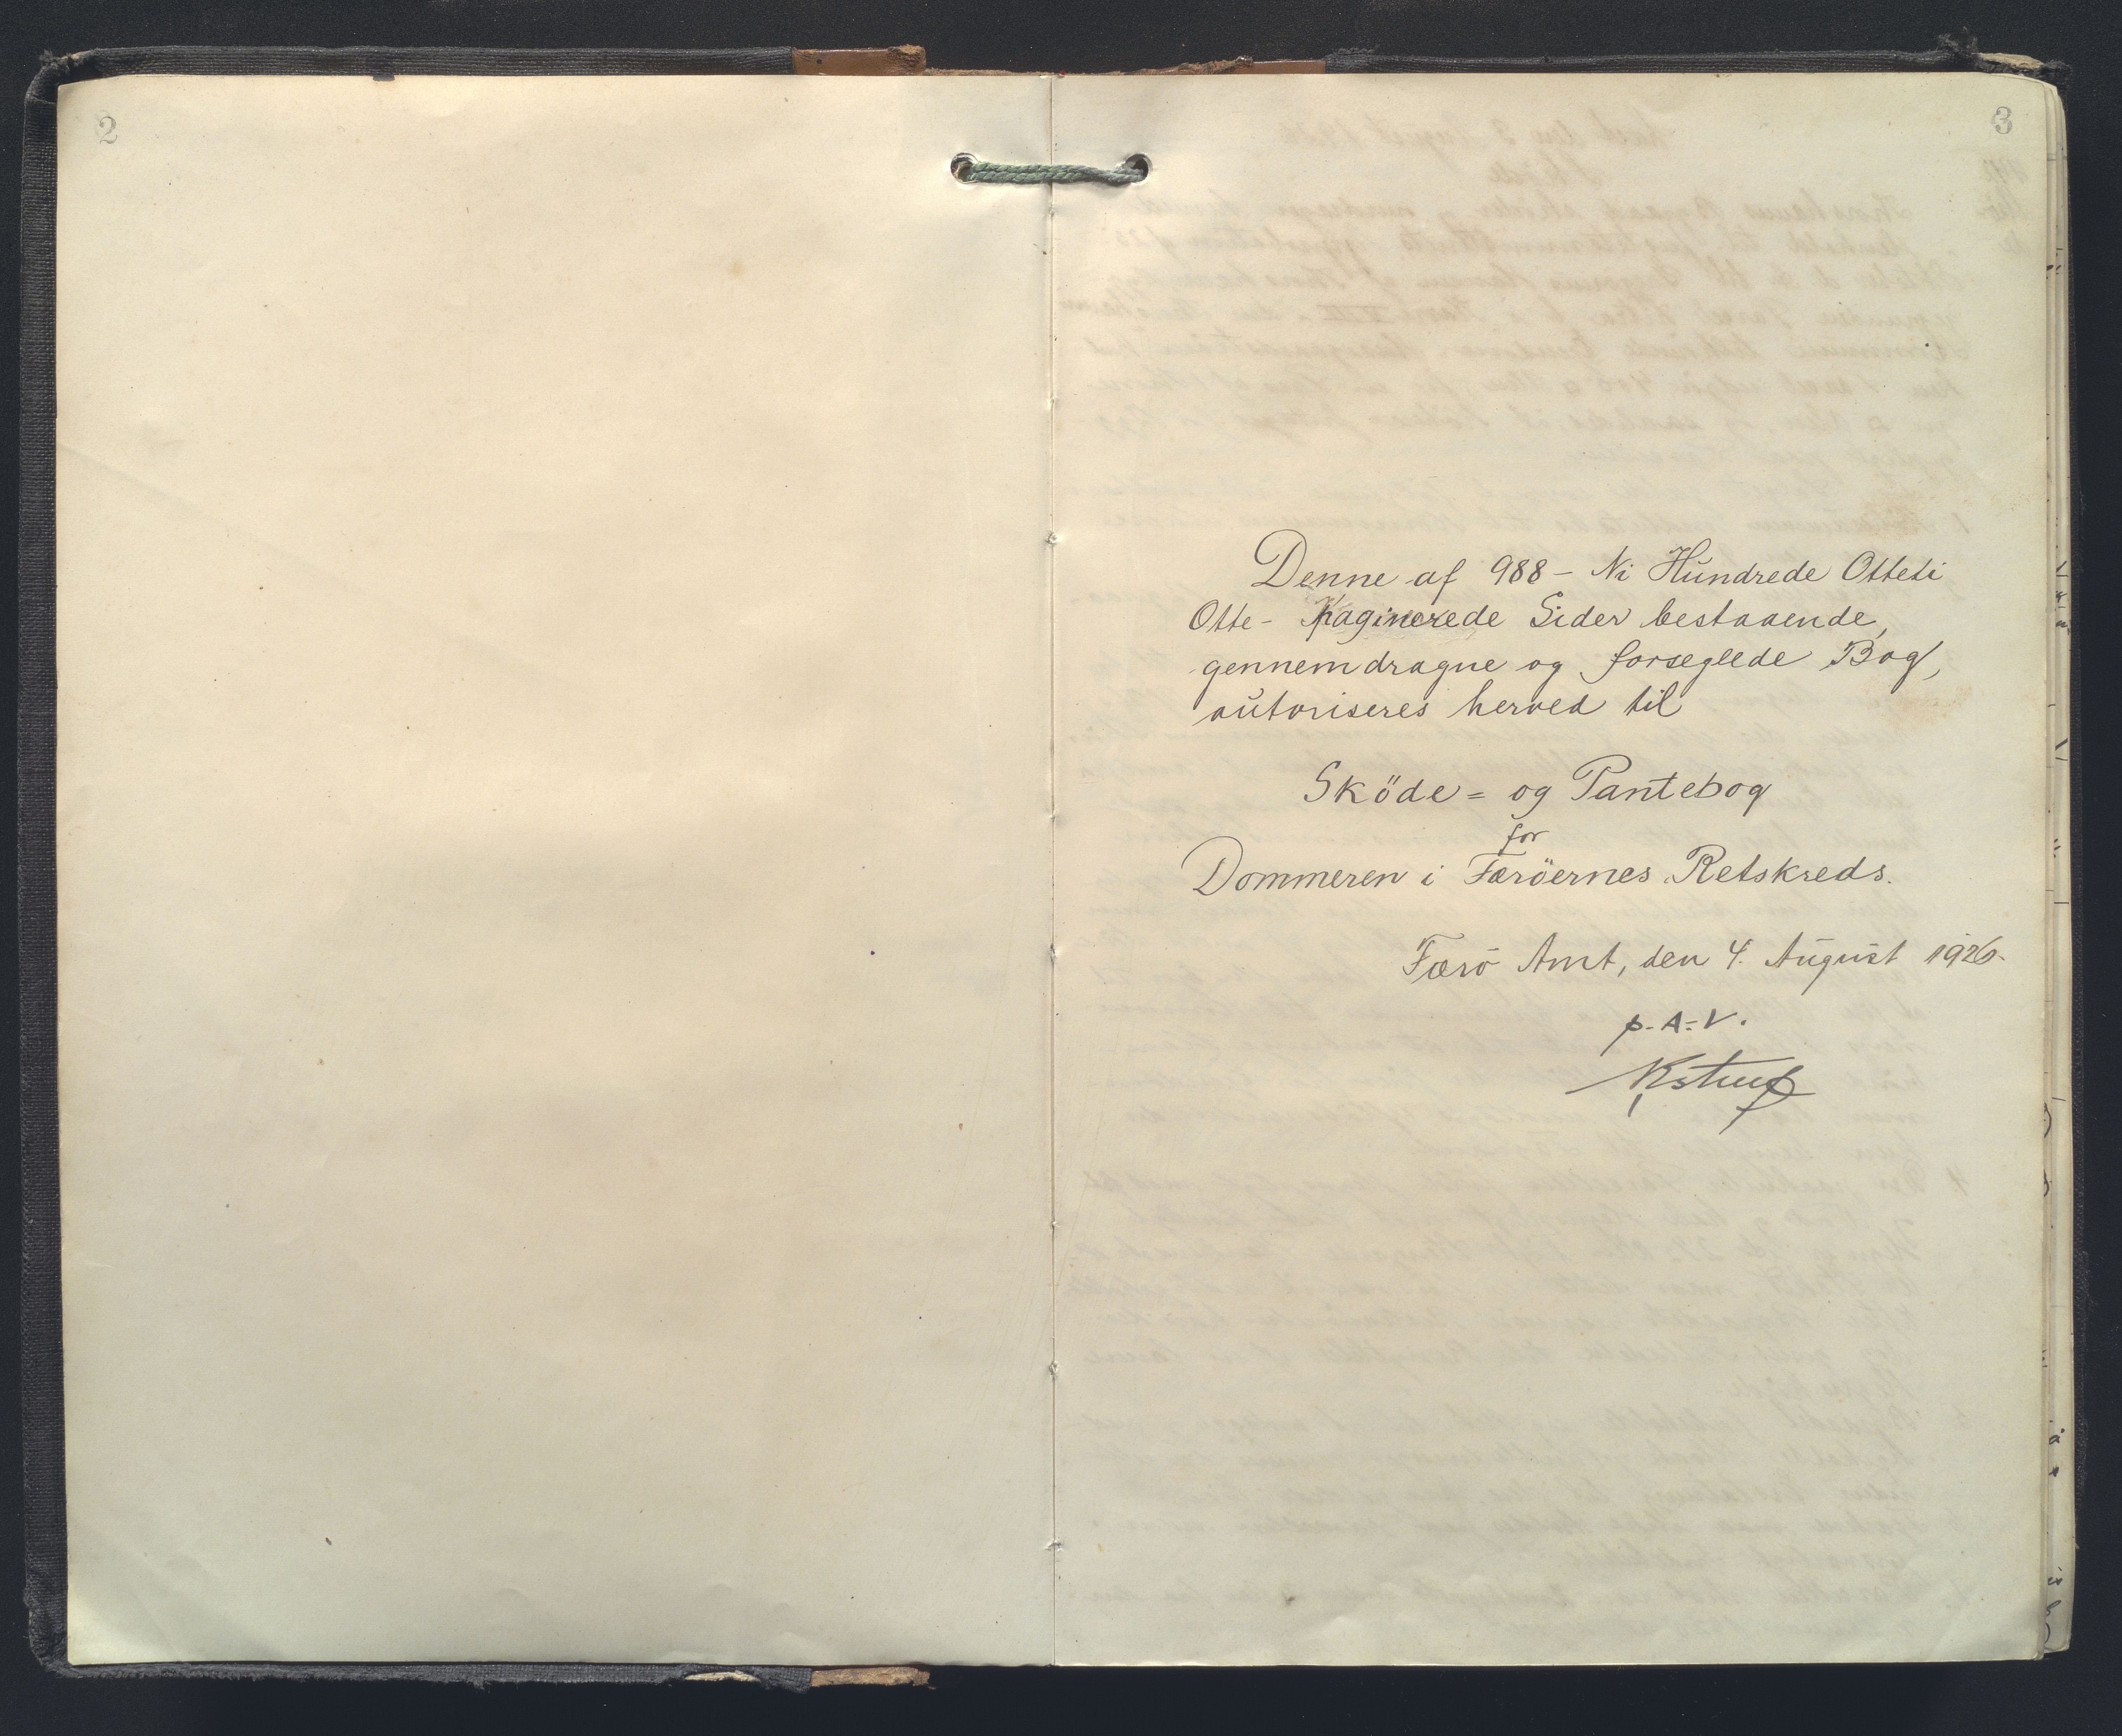 2
3
Denne af 988 - Ni Hundrede Otteti
Otte - paginerede Sider bestaaende,
gennemdragne og forseglede Bog,
autoriseres herved til
Sköde = og Pantebog
for
Dommeren i Færöernes Retskreds.
Færö Amt, den 4. August 1926.
p. A. V.